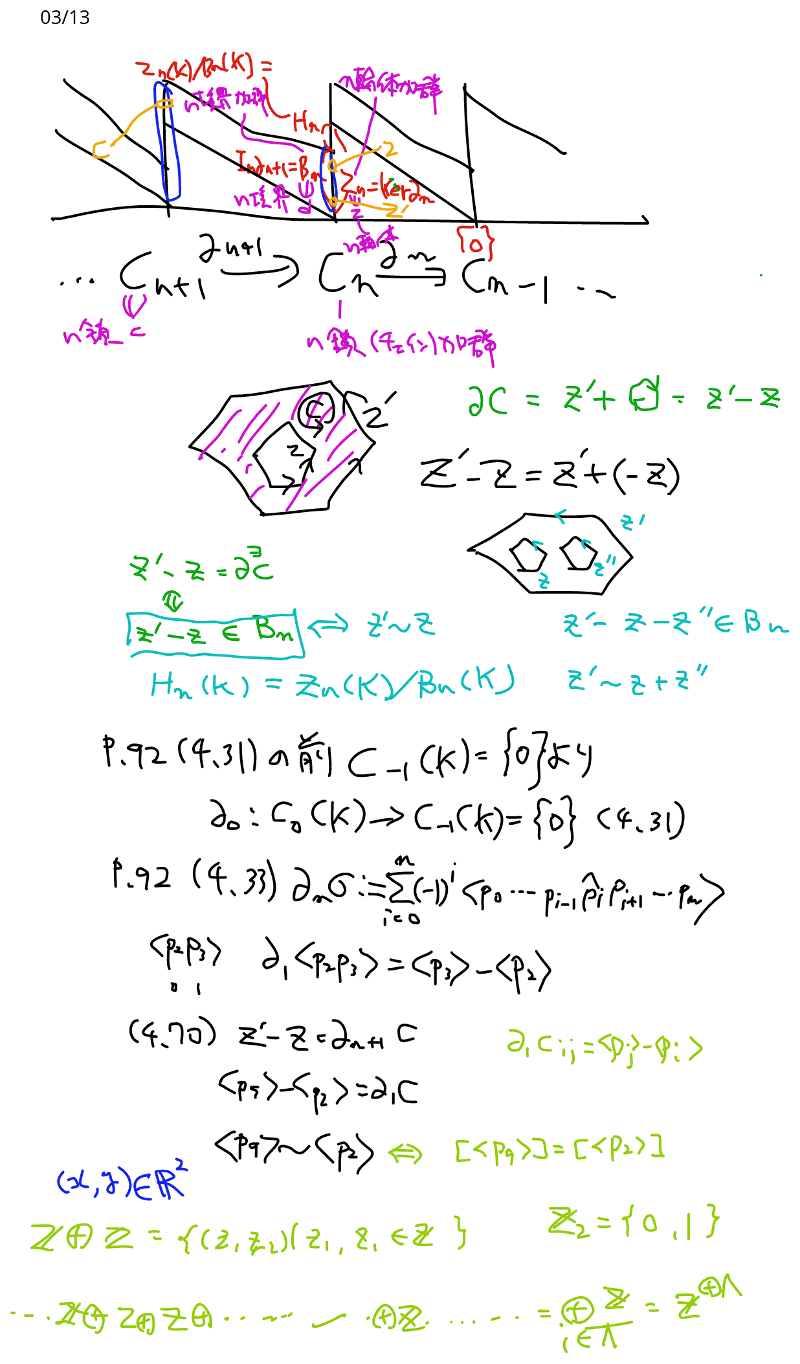 03/13
Zn(K)/Bn(K) =
n境界加群
n輪体加群
Hn
c
z
Im∂n+1=Bn
Zn=ker∂n
n境界
z'
n輪体
{0}
... Cn+1 ∂n+1→ Cn ∂n→ Cn-1 ...
n鎖 c
n鎖(チェイン)加群
c
z'
z
∂C = z'+ = z'-z
z'-z = z'+(-z)
z'
z
z''
z'-z=∂∃c
⇕
z'-z ∈ Bn ⇔ z'~z
z'-z-z''∈Bn
Hn(K) = Zn(K)/Bn(K)
z'~z+z''
P.92 (4.31) の解釈 C-1(K)={0}より
∂0:C0(K)→C-1(K)={0} (4.31)
P.92 (4.33) ∂nσ:=∑i=0n(-1)i<p0…pi-1p̂ipi+1…pn>
<p2p3> ∂1<p2p3>=<p3>-<p2>
0 1
(4.70) z'-z=∂n+1 c
∂1cij=<pj>-<pi>
<p9>-<p2>=∂1c
<p9>~<p2> ⇔ [<p9>]=[<p2>]
(x,y)∈ℝ2
ℤ⊕ℤ={(z1,z2)|z1,z1∈ℤ}
ℤ2={0,1}
...ℤ⊕ℤ⊕ℤ⊕...... ⊕ℤ...... = ⊕i∈Λ ℤ = ℤ⊕Λ